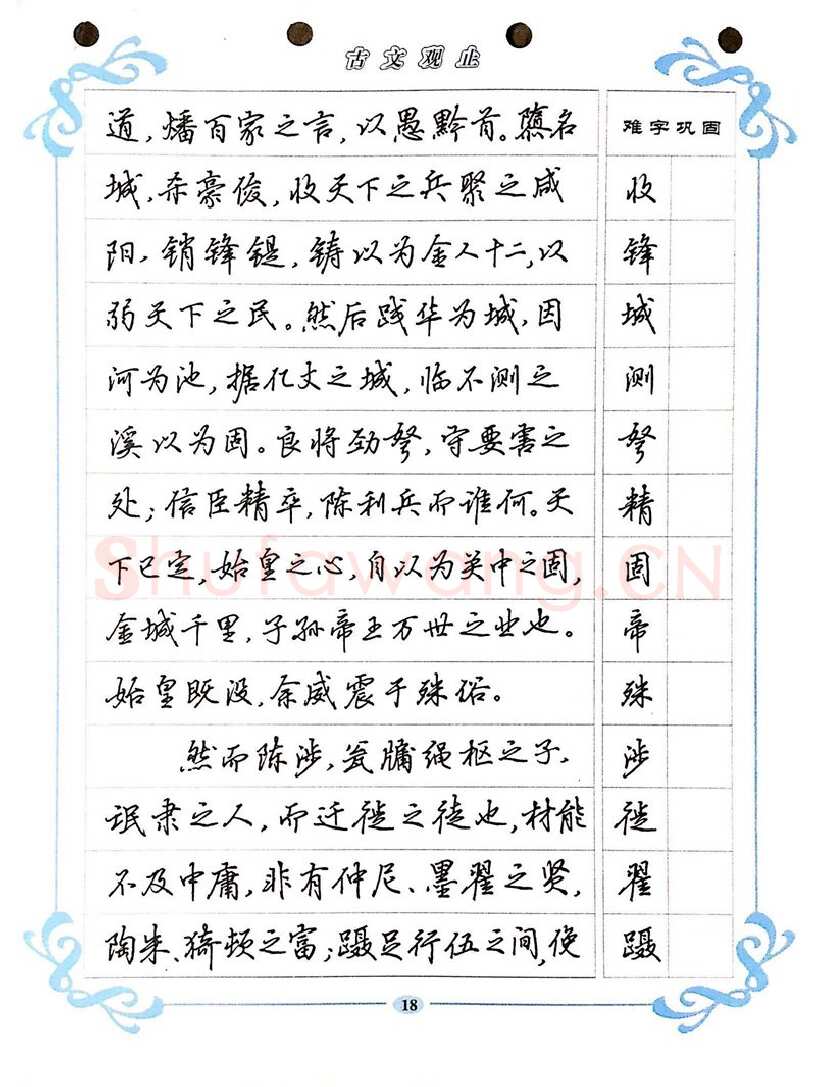 古文观止
道，燔百家之言，以愚黔首。隳名
城，杀豪俊，收天下之兵聚之咸
阳，销锋鍉，铸以为金人十二，以
弱天下之民。然后践华为城，因
河为池，据亿丈之城，临不测之
溪以为固。良将劲弩，守要害之
处；信臣精卒，陈利兵而谁何。天
下已定，始皇之心，自以为关中之固，
金城千里，子孙帝王万世之业也。
始皇既没，余威震于殊俗。
然而陈涉，瓮牖绳枢之子，
氓隶之人，而迁徙之徒也，材能
不及中庸，非有仲尼、墨翟之贤，
陶朱、猗顿之富；蹑足行伍之间，俛
难字巩固
收
锋
城
测
弩
精
固
帝
殊
涉
徙
翟
蹑
Shufawang.CN
18